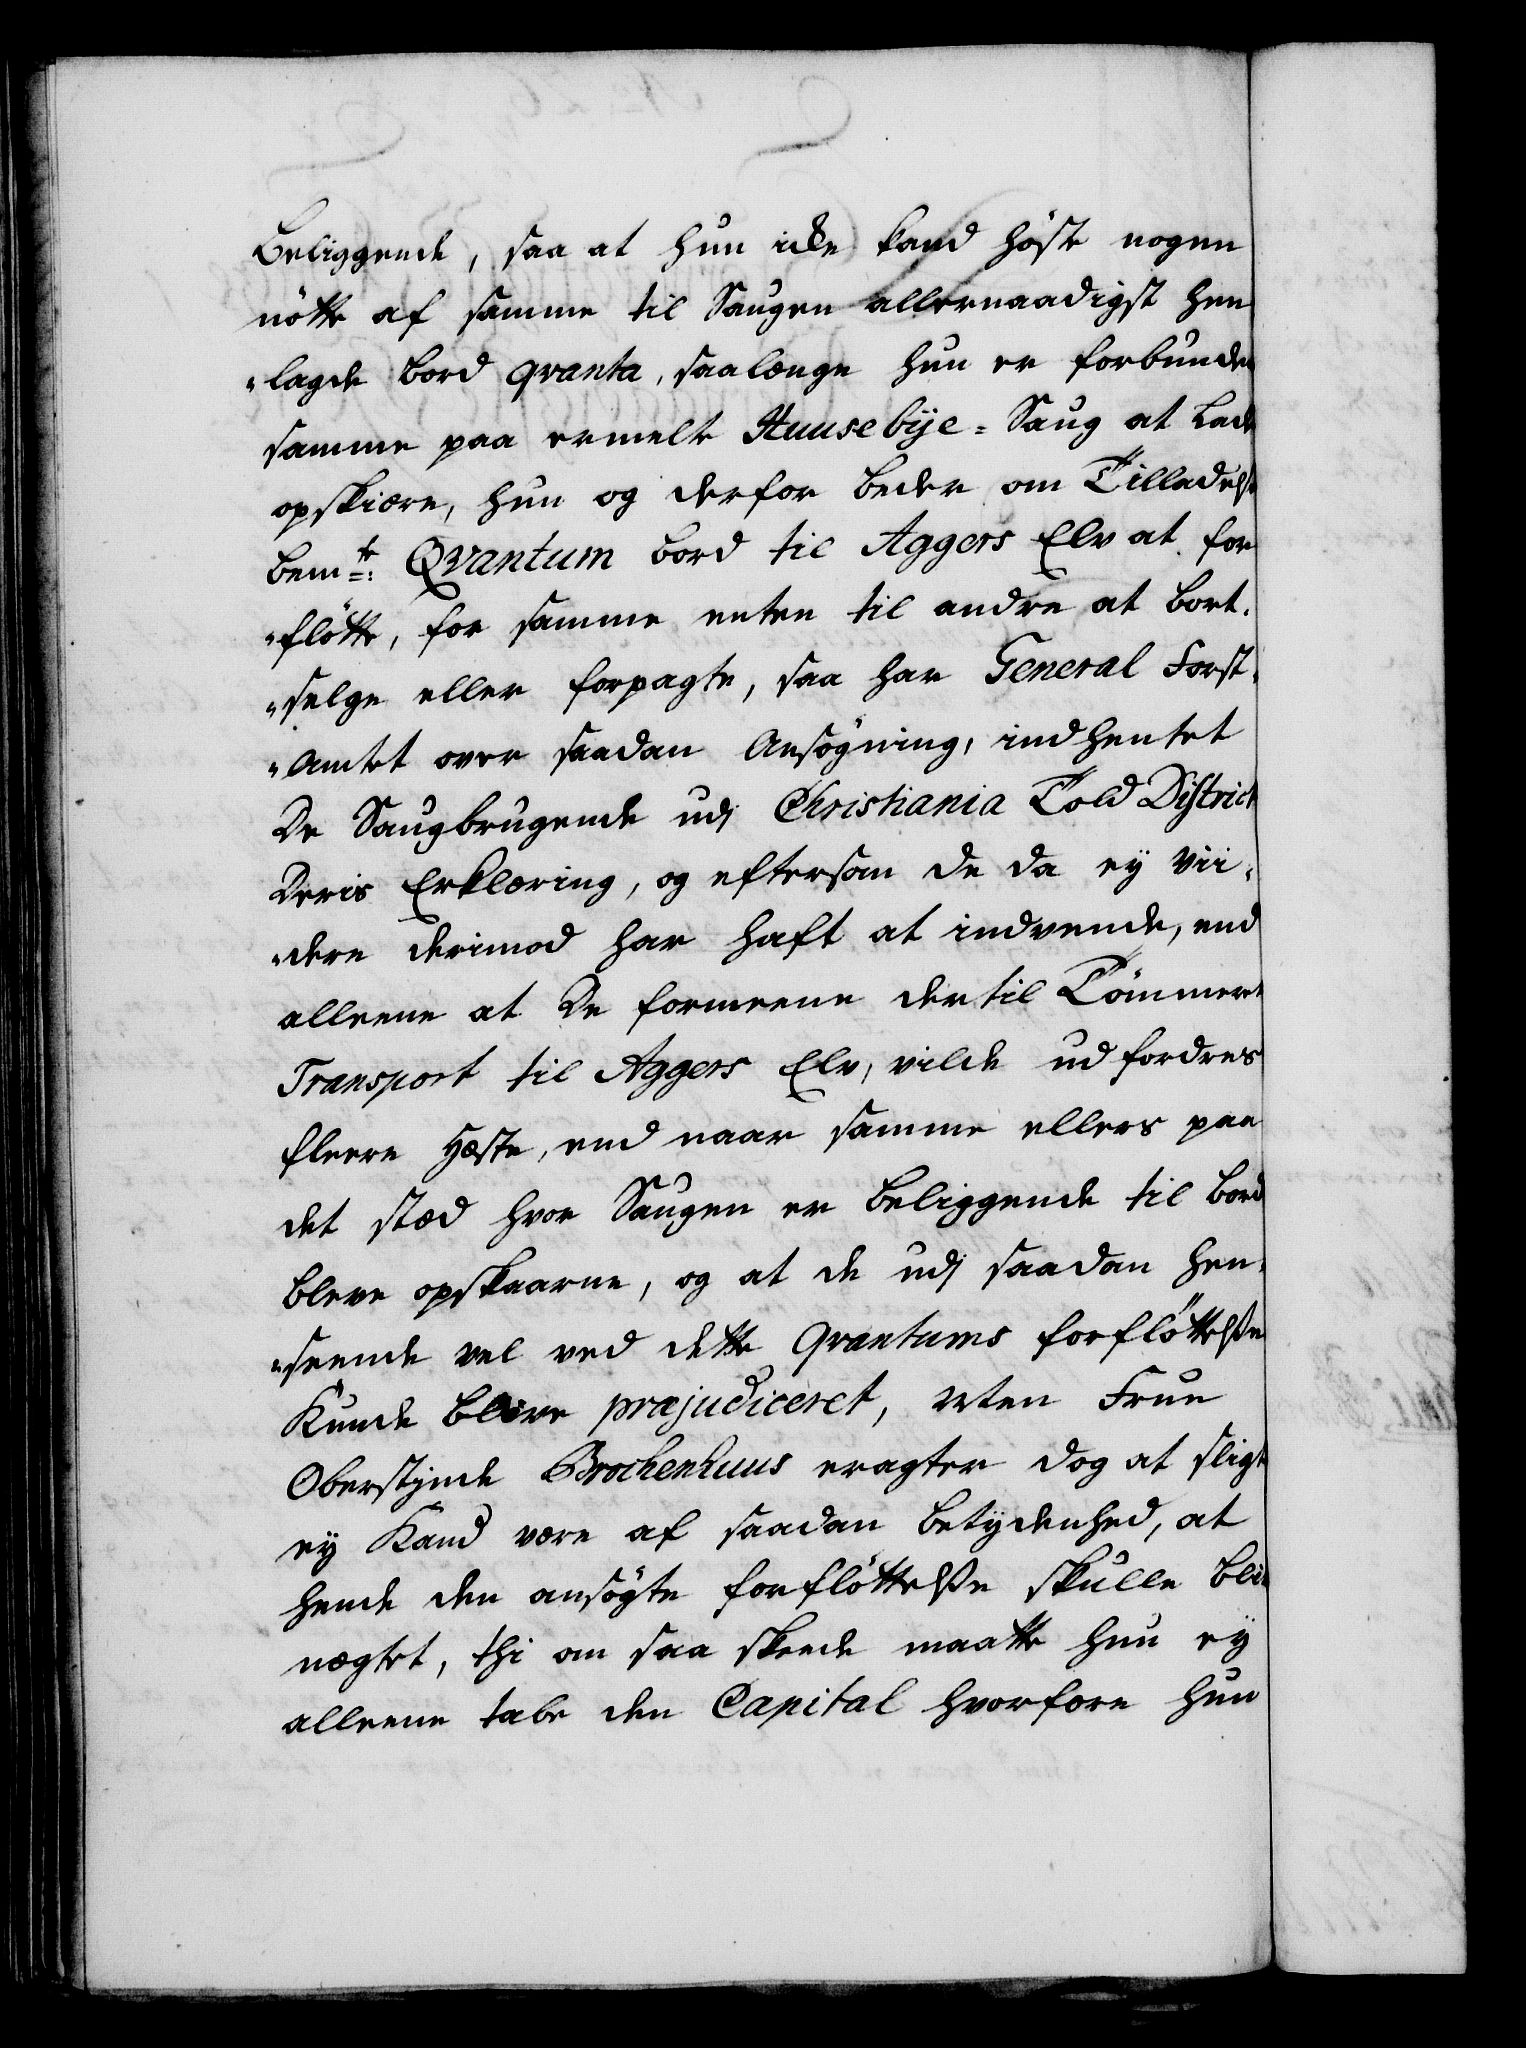 beliggende, saa at hun icke kand höste nogen
nötte af samme til Saugen allernaadigst hen
"lagde bord qvanta, saalænge hun er forbunden
samme paa ermelte Huusebÿe = Saug at lade
opskiære, hun og derfor beder om Tilladelse
bemte: Qvantum bord til Aggers Elv at for
"flötte, for samme enten til andre at bort.
"selge eller forpagte, saa har General Forst.
"Amtet over saadan Ansögning, indhentet
De Saugbrugende udj Christiania Told District
Deris Erklæring, og eftersom de da eÿ vii.
"dere derimod har haft at indvende, end
alleene at De formeene der til Tömmer
Transport til Aggers Elv, vilde udfordres
fleere Heste, end naar samme ellers paa
det stæd hvor Saugen er beliggende til bord
bleve opskaarne, og at de udj saadan hen.
"seende vel ved dette Qvantums forflöttelße
Kunde blive præjudiceret, Men Frue
Oberstjnde Brochenhuus eragter dog at sligt
eÿ Kand være af saadan betÿdenhed, at
hende den ansögte forflöttelße skulle bli
nægtet, thi om saa skeede maatte hun eÿ
alleene tabe den Capital hvorfore hun